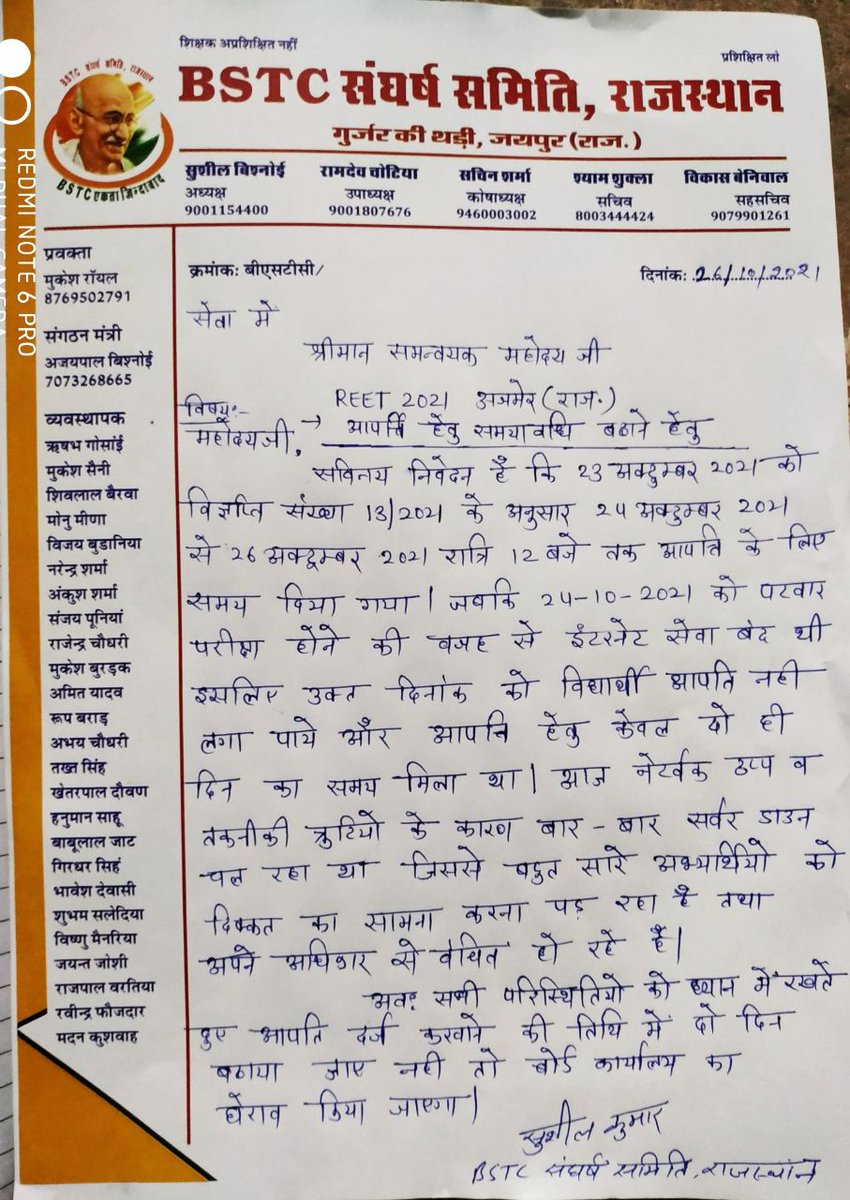 शिक्षक अप्रशिक्षित नहीं
प्रशिक्षित लो
BSTC संघर्ष समिति, राजस्थान
गुर्जर की थडी, जयपुर (राज.)
BSTC संघर्ष समिति, राजस्थान
BSTC एकता जिन्दाबाद
सुशील बिश्नोई
अध्यक्ष
9001154400
रामदेव चोटिया
उपाध्यक्ष
9001807676
सचिन शर्मा
कोषाध्यक्ष
9460003002
श्याम शुक्ला
सचिव
8003444424
विकास बेनिवाल
सहसचिव
9079901261
REDMI NOTE 6 PRO
MI DUAL CAMERA
प्रवक्ता
मुकेश रॉयल
8769502791
संगठन मंत्री
अजयपाल बिश्नोई
7073268665
व्यवस्थापक
ऋषभ गोसांई
मुकेश सैनी
शिवलाल बैरवा
मोनु मीणा
विजय बुडानिया
नरेन्द्र शर्मा
अंकुश शर्मा
संजय पूनियां
राजेन्द्र चौधरी
मुकेश बुरड़क
अमित यादव
रूप बराड़
अभय चौधरी
तख्त सिंह
खेतरपाल दौवण
हनुमान साहू
बाबूलाल जाट
गिरधर सिहं
भावेश देवासी
शुभम सलेदिया
विष्णु मैनरिया
जयन्त जोशी
राजपाल वरतिया
रवीन्द्र फौजदार
मदन कुशवाह
क्रमांकः बीएसटीसी/
दिनांकः 26/10/2021
सेवा में
श्रीमान समन्वयक महोदय जी
REET 2021 अजमेर (राज.)
विषय:-
→ आपत्ति हेतु समयावधि बढाने हेतु
महोदयजी,
सविनय निवेदन हैं कि 23 अक्टुम्बर 2021 को
विज्ञप्ति संख्या 13/2021 के अनुसार 24 अक्टुम्बर 2021
से 26 अक्टूम्बर 2021 रात्रि 12 बजे तक आपति के लिए
समय दिया गया। जबकि 24-10-2021 को पटवार
परीक्षा होने की वजह से इंटरनेट सेवा बंद थी
इसलिए उक्त दिनांक को विद्यार्थी आपति नही
लगा पाये और आपति हेतु केवल दो ही
दिन का समय मिला था। आज नेटर्वक ठप्प व
तकनीकी त्रुटियो के कारण बार - बार सर्वर डाउन
चल रहा था जिससे बहुत सारे अभ्यार्थियो को
दिक्कत का सामना करना पड़ रहा है तथा
अपने अधिकार से वंचित हो रहे हैं।
अतः सभी परिस्थितियो को ध्यान में रखते
हुए आपति दर्ज करवाने की तिथि में दो दिन
बढाया जाए नही तो बोर्ड कार्यालय का
घेराव किया जाएगा।
सुशील कुमार
BSTC संघर्ष समिति, राजस्थान